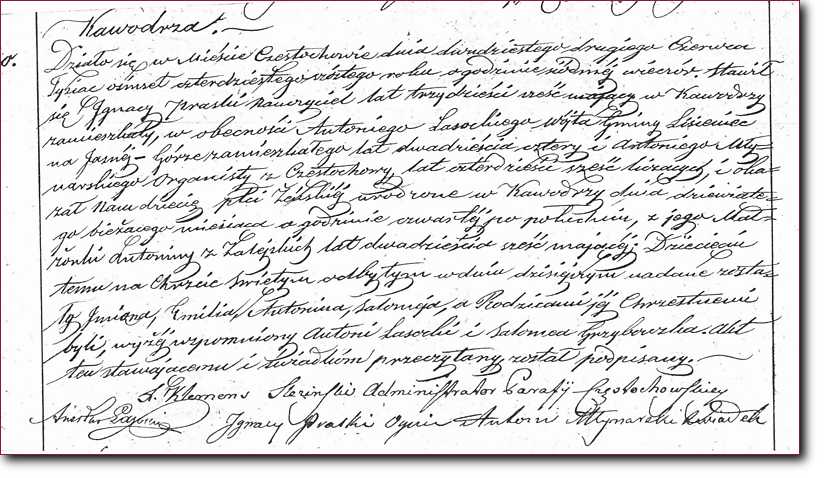 Kawodrza.
Działo się w Mieście Częstochowie dnia dwudziestego drugiego Czerwca
Tysiąc ośmset czterdziestego szóstego roku o godzinie siódmej wieczór. Stawił
się Ignacy Praski nauczyciel lat trzydzieści sześć mający w Kawodrzy
zamieszkały, w obecności Antoniego Lasockiego Wójta Gminy Lisieniec
na Jasnéj-Górze zamieszkałego lat dwadzieścia cztery i Antoniego Mły-
narskiego Organisty z Częstochowy lat czterdzieści sześć liczących, i oka-
zał Nam dziecię płci Żeńskiéj urodzone w Kawodrzy dnia dziewiąte-
go bieżącego miesiąca o godzinie czwartéj po południu, z jego Mał-
żonki Antoniny z Zalejskich lat dwadzieścia sześć mającéj; Dziecięciu
temu na Chrzcie Świętym odbytym w dniu dzisiejszym nadane zosta-
ły Imiona, Emilia, Antonina, Salomeja, a Rodzicami jéj Chrzestnemi
byli, wyżéj wspomniony Antoni Lasocki i Salomea Grzyborzka. Akt
ten stawającemu i Świadkom przeczytany, został podpisany.
X. Klemens Administrator Parafij Częstochowskiey
Ignacy Praski Oyciec Antoni Młynarski świadek